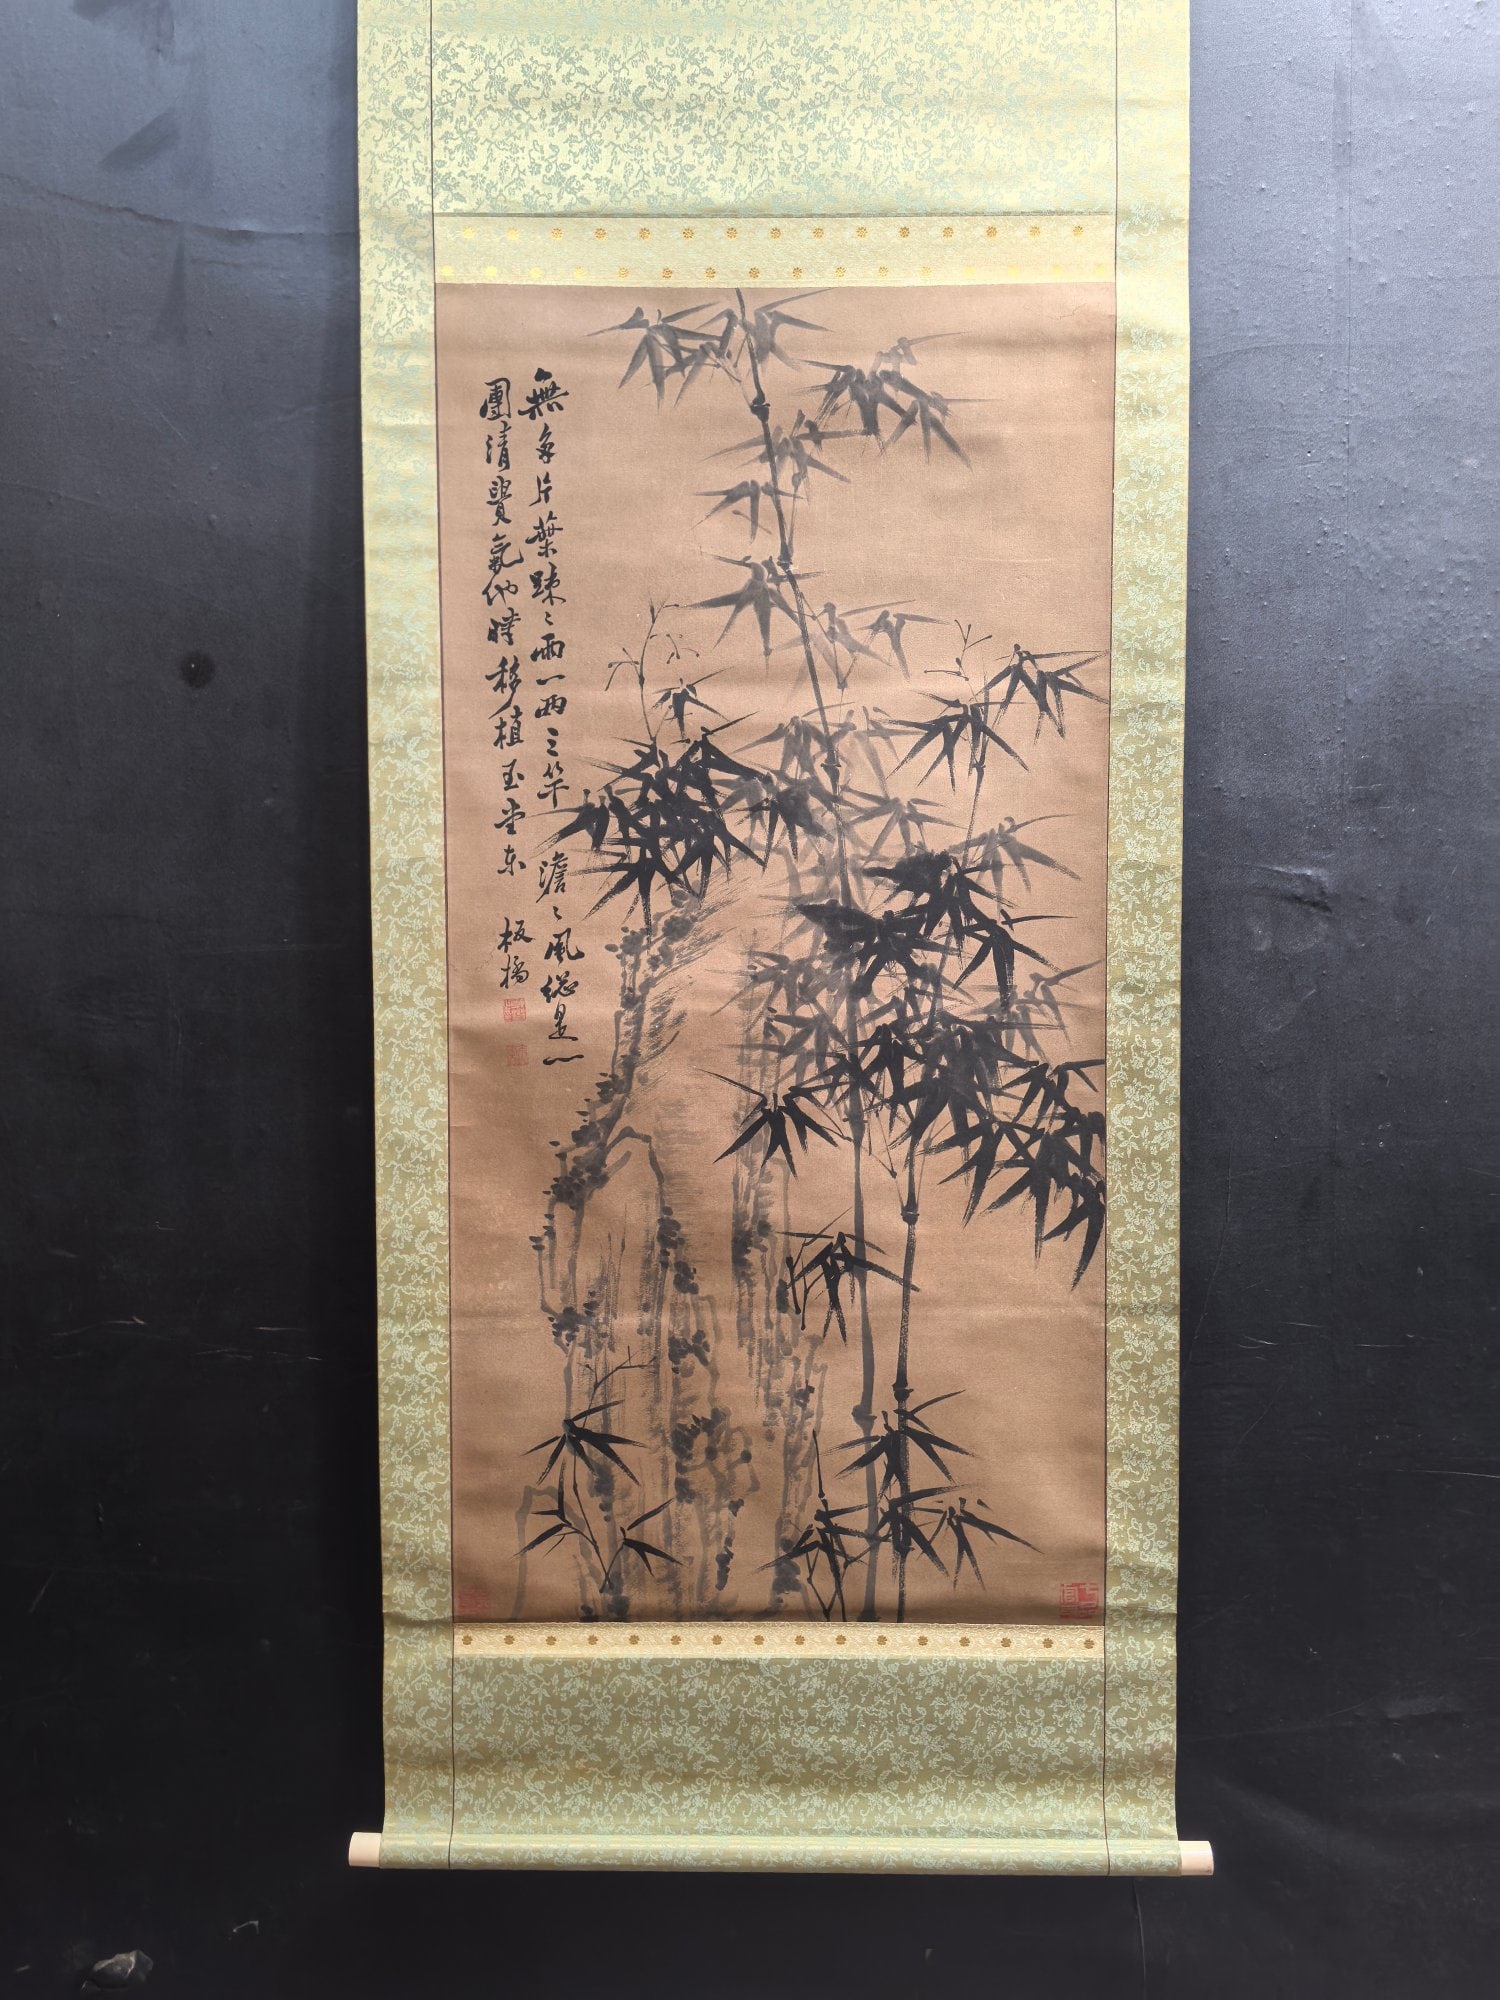 無多片葉踈〻雨一兩三竿澹〻風總是一
團清貴氣他時移植玉堂東
板橋